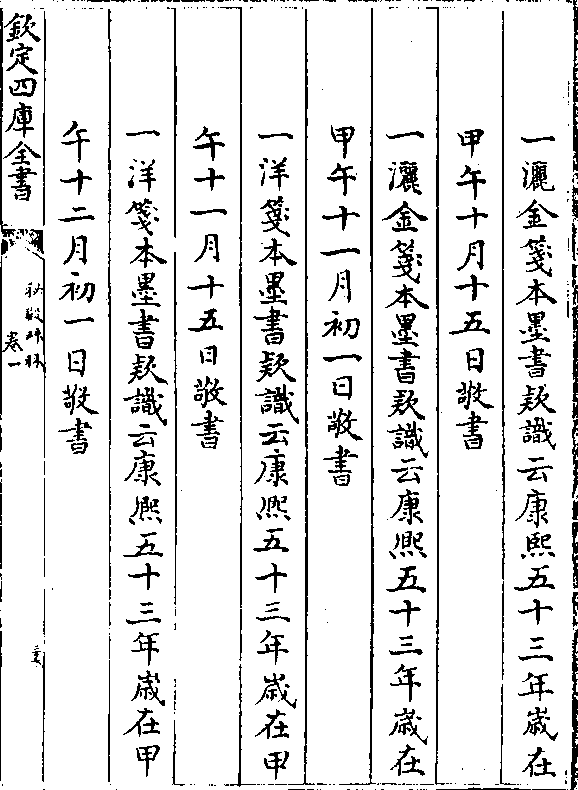 一灑金箋本墨書款識云康熙五十三年歲在
甲午十月十五日敬書
一灑金箋本墨書款識云康熙五十三年歲在
甲午十一月初一日敬書
一洋箋本墨書款識云康熙五十三年歲在甲
午十一月十五日敬書
一洋箋本墨書款識云康熙五十三年歲在甲
午十二月初一日敬書
欽定四庫全書
秘殿珠林
卷一